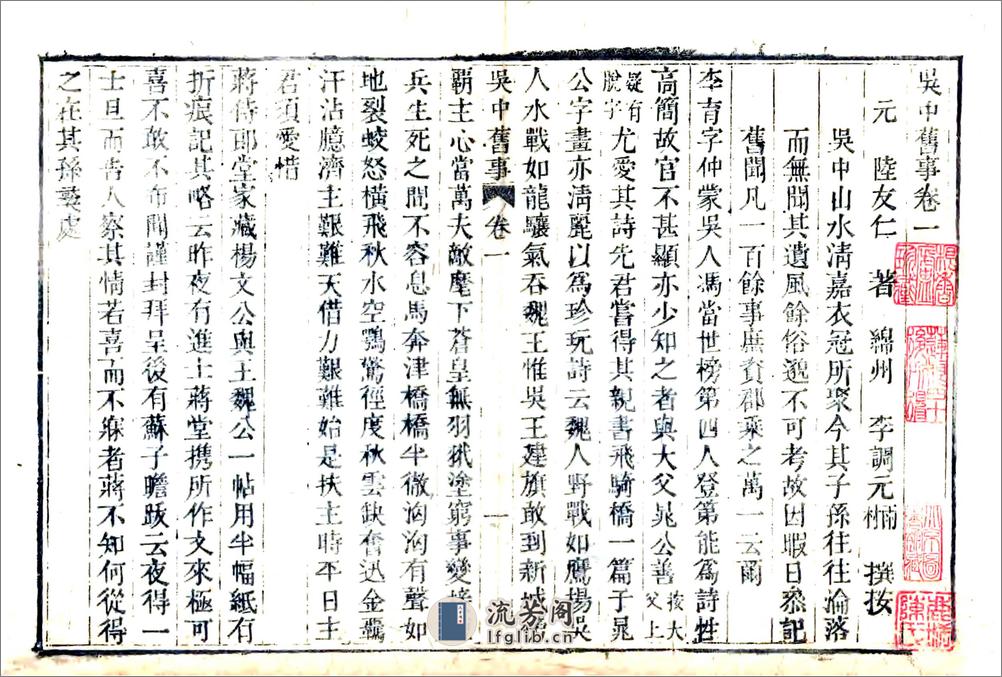 吳中舊事卷一
元 陸友仁 著 綿州 李調元雨村 撰按
吳中山水淸嘉衣冠所聚今其子孫往往淪落
而無聞其遺風餘俗邈不可考故因暇日叅記
舊聞凡一百餘事庶資郡乘之萬一云爾
李育字仲蒙吳人馮當世榜第四人登第能爲詩性
高簡故官不甚顯亦少知之者與大父晁公善按大父上
疑有脫字尤愛其詩先君嘗得其親書飛騎橋一篇于晁
公字畫亦淸麗以爲珍玩詩云魏人野戰如鷹揚吳
人水戰如龍驤氣吞魏王惟吳王建旗敢到新城
吳中舊事 卷一 一
霸主心當萬夫敵麾下蒼皇無羽翼塗窮事變接
兵生死之間不容息馬奔津橋橋半撤洶洶有聲如
地裂蛟怒橫飛秋水空鶚驚徑度秋雲缺奮迅金羈
汗沾臆濟主艱難天借力艱難始是扶主時平日主
君須愛惜
蔣侍郎堂家藏楊文公與王魏公一帖用半幅紙有
折痕記其略云昨夜有進士蔣堂携所作文來極可
喜不敢不布聞謹封拜呈後有蘇子瞻跋云夜得一
士旦而告人察其情若喜而不寐者蔣不知何從得
之在其孫彝處
流芳阁
lfglib.cn